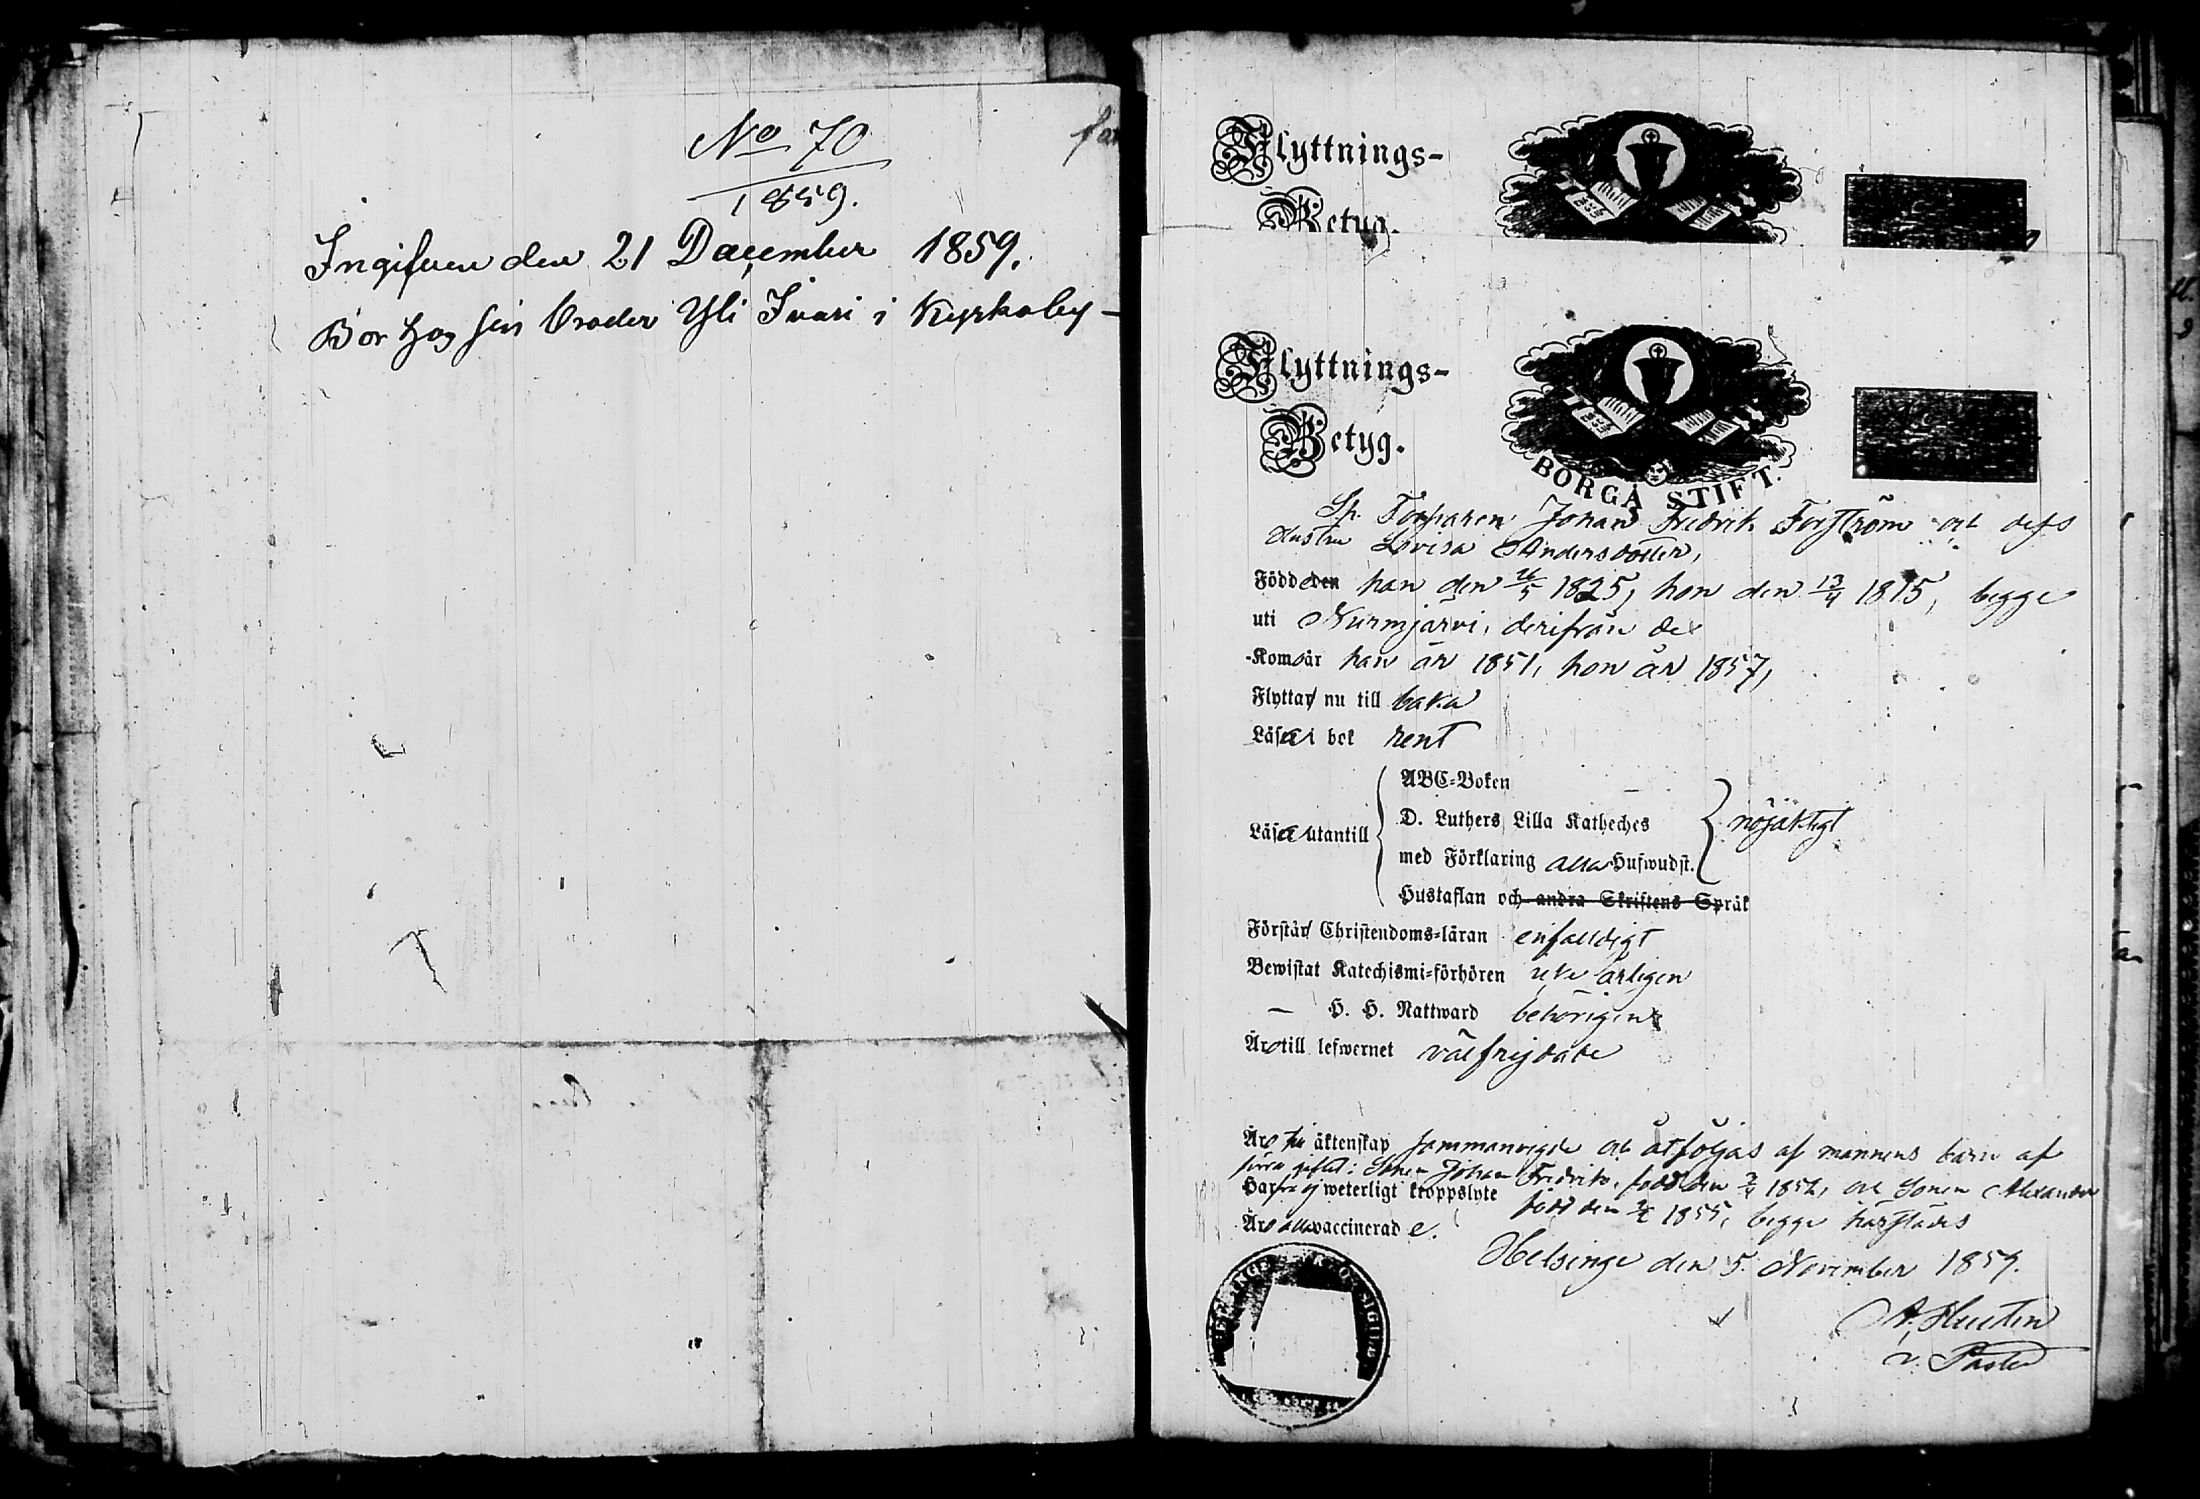 No 70
1859.
Ingifven den 21 December 1859.
Bor hos sin broder Yli Ivari i Kyrkoby -
Flyttnings-
Betyg.
Flyttnings-
Betyg.
BORGÅ STIFT.
Sp. Torparen Johan Fredrik Forström och dess
hustru Lovisa Andersdotter,
Födde den han den 26/5 1825, hon den 13/4 1815, begge
uti Nurmijärvi, derifrån de
Komo år han år 1851, hon år 1857,
Flyttar nu till baka
Läsa i bok rent
ABC-Boken
D. Luthers Lilla Katheches
Läsa utantill
nöjaktigt
med Förklaring alla Hufwudst.
Hustaflan och andra Skriftens Språk
Förstår Christendoms-läran enfaldigt
Bewistat Katechismi-förhören icke årligen
— H. H. Nattward behörigen
Äro till lefwernet välfrejdade
Äro till äktenskap sammanvigde och åtföljas af mannens barn af
förra giftet: Sonen Johan Fredrik, född den 1852, och Sonen Alexander
Harfva ej weterligt kroppslyte född den 1855, begge härstädes
Äro alla vaccinerade.
Helsinge den 5. November 1859.
v. Pastor